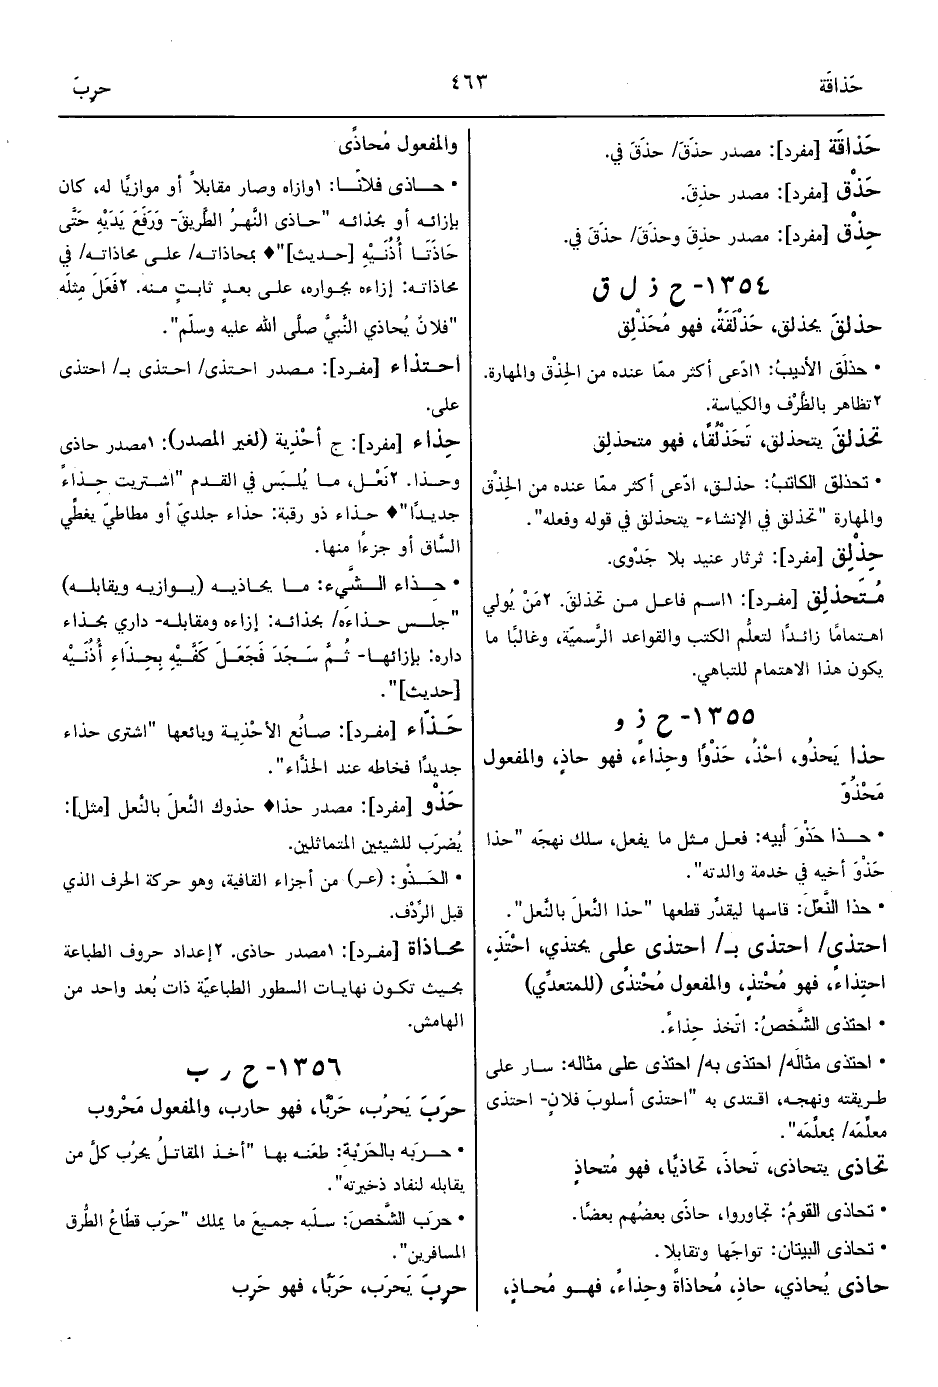 حَذاقَة
٤٦٣
حرِبَ
حَذاقَة [مفرد]: مصدر حذَقَ/ حذَقَ في.
حَذْق [مفرد]: مصدر حذِقَ.
حِذْق [مفرد]: مصدر حذِقَ وحذَقَ/ حذَقَ في.
١٣٥٤- ح ذ ل ق
حذلقَ يحذلق، حَذْلَقَةً، فهو مُحَذْلِق
• حذلَق الأديبُ: ١ادّعى أكثر ممّا عنده من الحِذْق والمهارة.
٢تظاهر بالظَّرْف والكياسة.
تحذلقَ يتحذلق، تَحَذْلُقًا، فهو متحذلِق
• تحذلق الكاتبُ: حذلـق، ادّعى أكثر ممّا عنده من الحِذْق
والمهارة "تحذلق في الإنشاء- يتحذلق في قوله وفعله".
حِذْلِق [مفرد]: ثرثار عنيد بلا جَدْوى.
مُتَحَذلِق [مفرد]: ١اسم فاعل من تحذلقَ. ٢مَنْ يُولي
اهتمامًا زائدًا لتعلُّم الكتب والقواعد الرَّسميّة، وغالبًا ما
يكون هذا الاهتمام للتباهي.
١٣٥٥- ح ذ و
حذا يَحذُو، احْذُ، حَذْوًا وحِذاءً، فهو حاذٍ، والمفعول
مَحْذُوّ
• حذا حَذْوَ أبيه: فعل مثل ما يفعل، سلك نهجَه "حذا
حَذْوَ أخيه في خدمة والدته".
• حذا النَّعلَ: قاسها ليقدِّر قطعها "حذا النَّعلَ بالنَّعل".
احتذى/ احتذى بـ/ احتذى على يحتذي، احْتَذِ،
احتِذاءً، فهو مُحْتذٍ، والمفعول مُحْتذًى (للمتعدِّي)
• احتذى الشَّخصُ: اتّخذ حِذاءً.
• احتذى مثالَه/ احتذى به/ احتذى على مثاله: سار على
طريقته ونهجه، اقتدى به "احتذى أسلوبَ فلانٍ- احتذى
معلِّمَه/ بمعلِّمَه".
تحاذى يتحاذى، تَحاذَ، تحاذيًا، فهو مُتحاذٍ
• تحاذى القومُ: تجاوروا، حاذَى بعضُهم بعضًا.
• تحاذى البيتان: تواجَها وتقابلا.
حاذى يُحاذي، حاذِ، مُحاذاةً وحِذاءً، فهو مُحاذٍ،
والمفعول مُحاذًى
• حاذى فلانًا: ١وازاه وصار مقابلاً أو موازيًا له، كان
بإزائه أو بحذائه "حاذى النَّهرُ الطَّريقَ- وَرَفَعَ يَدَيْهِ حَتَّى
حَاذَتَا أُذُنَيْهِ [حديث]"♦ بمحاذاته/ على محاذاته/ في
محاذاته: إزاءه بجواره، على بعدٍ ثابتٍ منه. ٢فَعَلَ مثلَه
"فلانٌ يُحاذي النَّبيَّ صلَّى الله عليه وسلَّم".
احتذاء [مفرد]: مصدر احتذى/ احتذى بـ/ احتذى
على.
حِذاء [مفرد]: ج أحْذِية (لغير المصدر): ١مصدر حاذى
وحذا. ٢نَعْل، ما يُلبَس في القدم "اشتريت حِذاءً
جديدًا"♦ حذاء ذو رقبة: حذاء جلديّ أو مطاطيّ يغطِّي
السَّاق أو جزءًا منها.
• حِذاء الشَّيء: ما يحاذيه (يوازيه ويقابله)
"جلس حذاءَه/ بحذائه: إزاءه ومقابله- داري بحذاء
داره: بإزائها- ثُمَّ سَجَدَ فَجَعَلَ كَفَّيْهِ بِحِذَاءِ أُذُنَيْهِ
[حديث]".
حَذّاء [مفرد]: صانُع الأحْذِية وبائعها "اشترى حذاء
جديدًا فخاطه عند الحذَّاء".
حَذْو [مفرد]: مصدر حذا♦ حذوك النَّعلَ بالنَّعل [مثل]:
يُضرَب للشيئين المتماثلين.
• الحَذْو: (عر) من أجزاء القافية، وهو حركة الحرف الذي
قبل الرِّدْف.
محاذاة [مفرد]: ١مصدر حاذى. ٢إعداد حروف الطباعة
بحيث تكون نهايات السطور الطباعيّة ذات بُعد واحد من
الهامش.
١٣٥٦- ح ر ب
حرَبَ يَحرُب، حَرْبًا، فهو حارب، والمفعول مَحْروب
• حربَه بالحَرْبة: طعَنه بها "أخذ المقاتلُ يحرُب كلَّ من
يقابله لنفاد ذخيرته".
• حرَب الشَّخصَ: سلَبه جميعَ ما يملك "حرَب قطّاعُ الطُّرق
المسافرين".
حرِبَ يَحرَب، حَرَبًا، فهو حَرِب